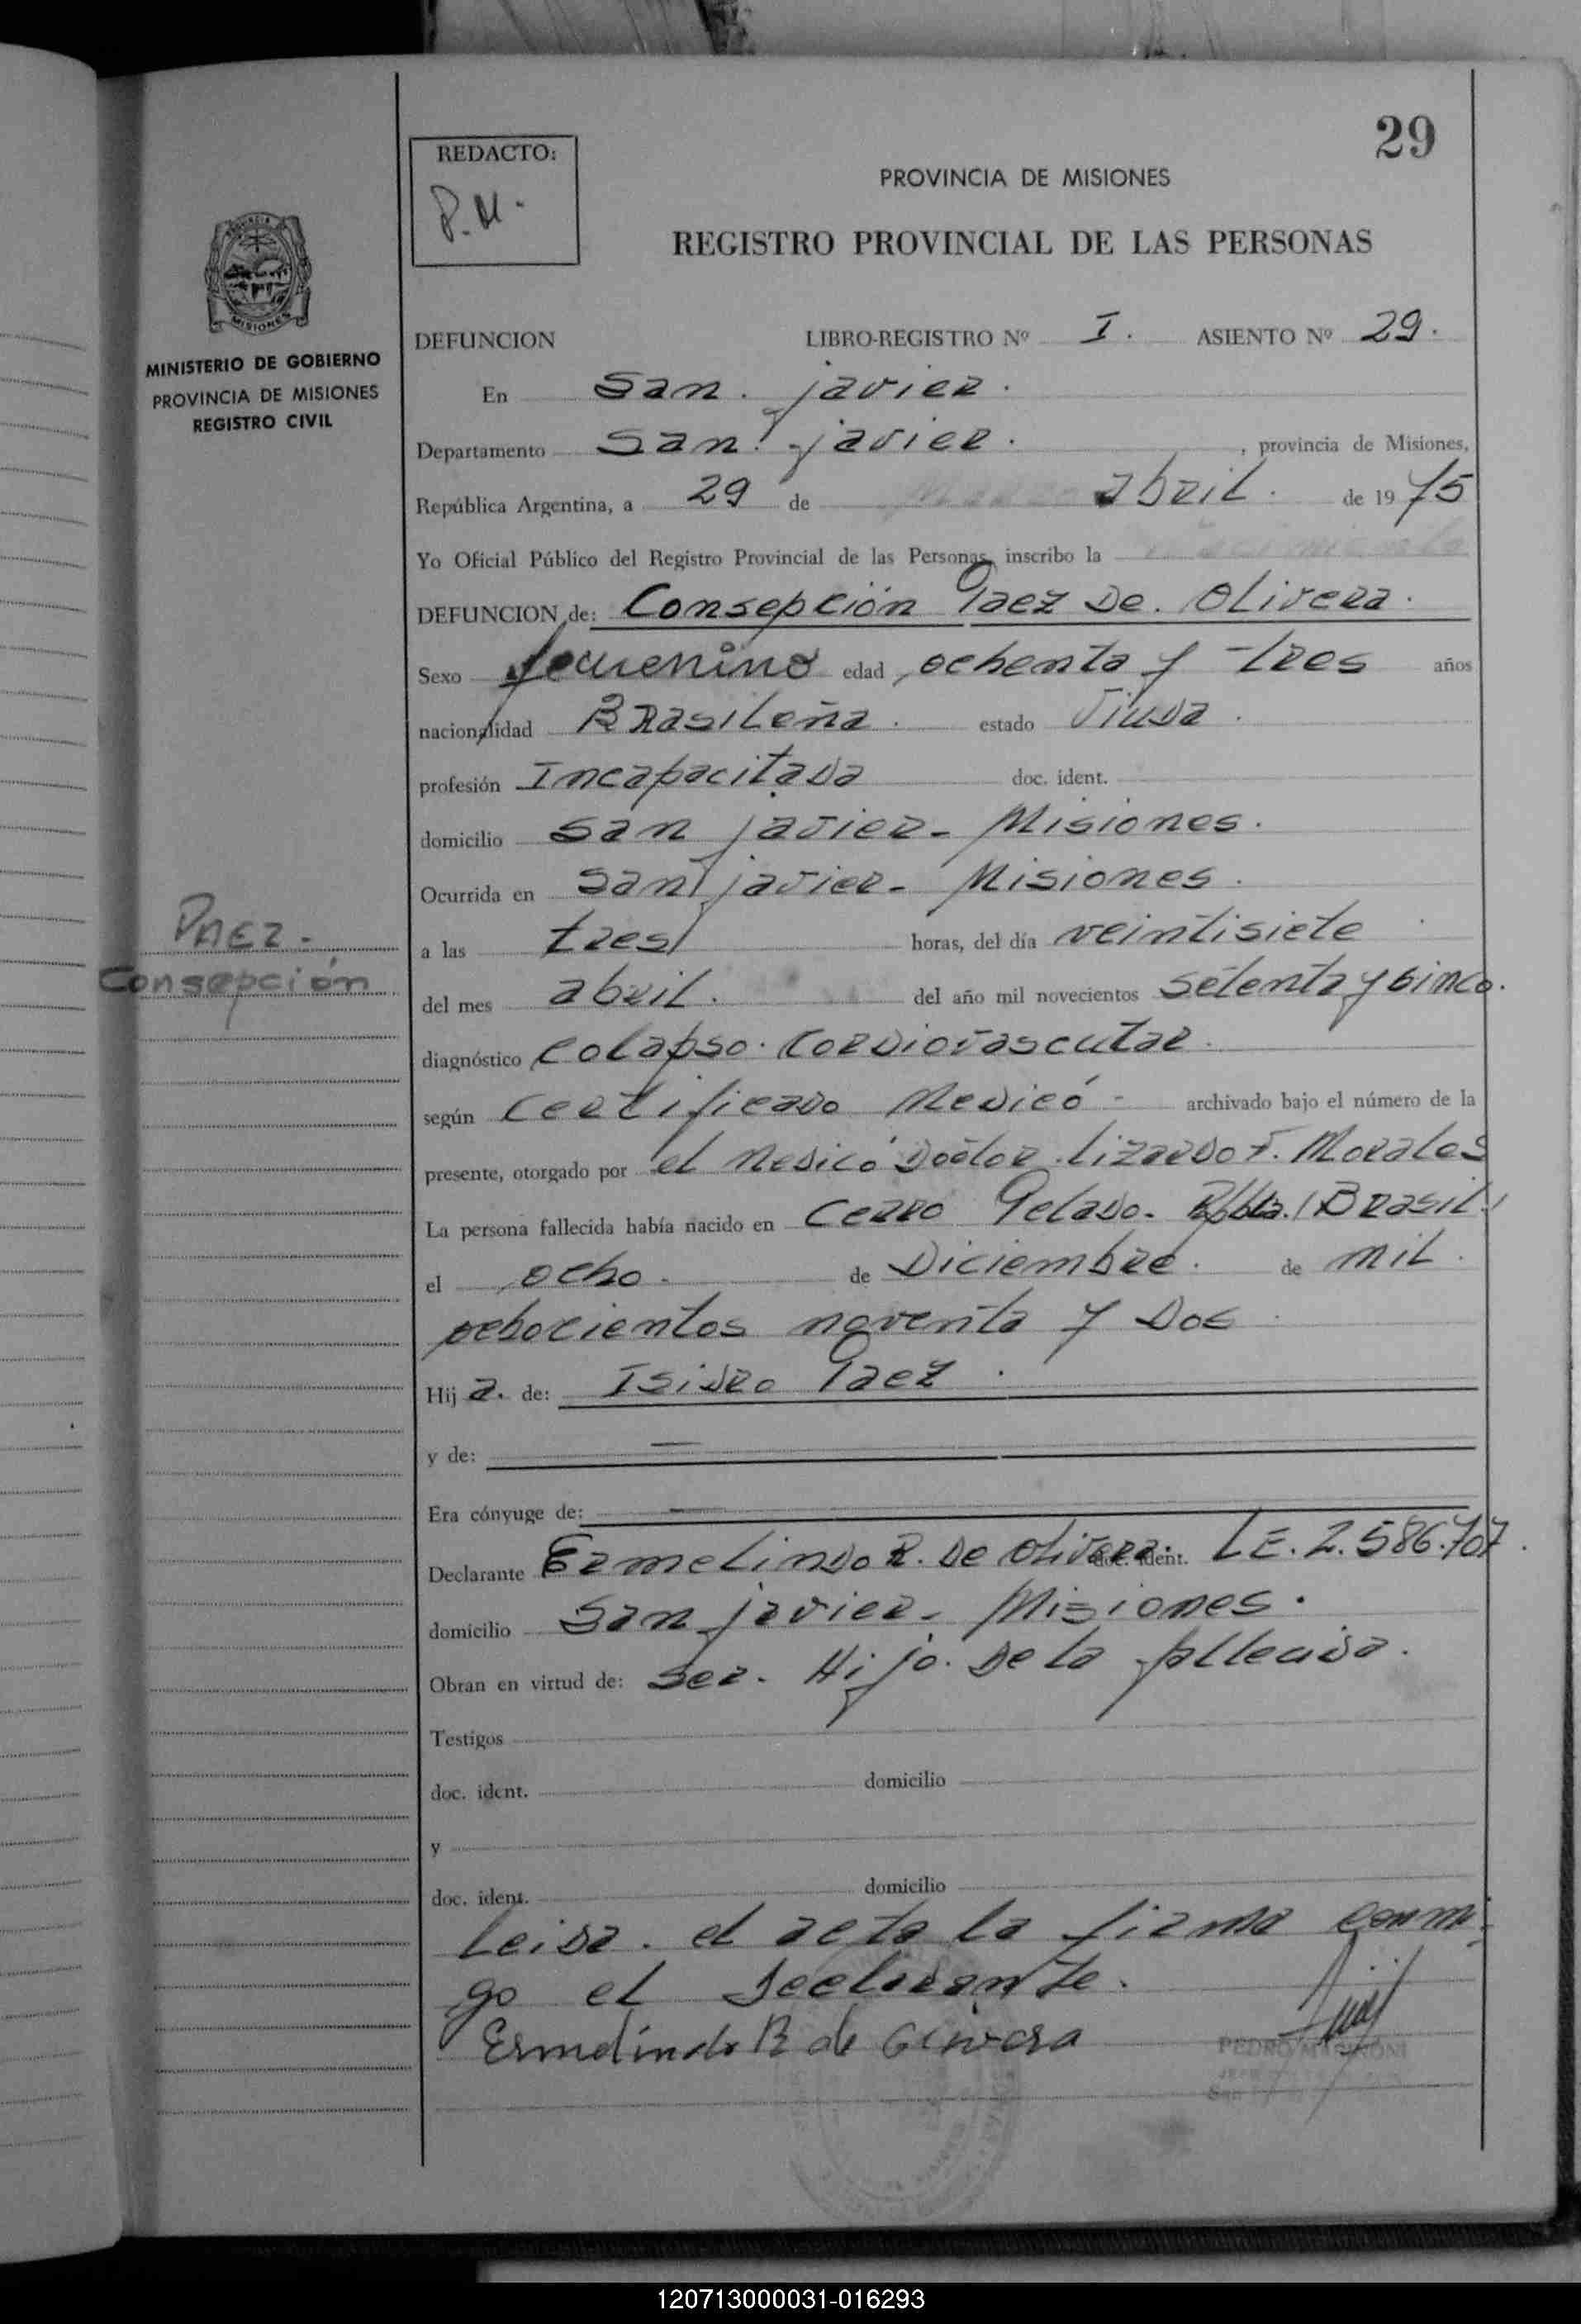 29
REDACTO:
P.M.
PROVINCIA DE MISIONES
REGISTRO PROVINCIAL DE LAS PERSONAS
MISIONES
MINISTERIO DE GOBIERNO
PROVINCIA DE MISIONES
REGISTRO CIVIL
DEFUNCION LIBRO-REGISTRO Nº I. ASIENTO Nº 29.
En San. javier.
Departamento San. javier. , provincia de Misiones,
República Argentina, a 29 de abril. de 19 75
Yo Oficial Público del Registro Provincial de las Personas, inscribo la
DEFUNCION de: Consepción Paez De. Olivera.
Sexo femenino edad ochenta y tres años
nacionalidad Brasileña. estado Viuda.
profesión Incapacitada doc. ident.
domicilio San javier - Misiones.
Ocurrida en San javier - Misiones.
PAEZ -
Consepción
a las tres horas, del día veintisiete
del mes abril. del año mil novecientos setenta y sinco.
diagnóstico Colapso. Cordiovascular.
según Certificado Medicó - archivado bajo el número de la
presente, otorgado por el Medicó Doctor. Lizardo F. Morales
La persona fallecida había nacido en Cerro Pelado. (Brasil)
el ocho. de Diciembre. de mil.
ochocientos noventa y Dos
Hij a. de: Isidro Paez.
y de: —
Era cónyuge de: —
Declarante Ermelindo R. De Olivera. doc. ident. L.E. 2.586.707.
domicilio San javier - Misiones.
Obran en virtud de: Ser. Hijo. De la fallecida.
Testigos
doc. ident. domicilio
y
doc. ident. domicilio
Leida. el acta la firma conmi-
go el declarante.
Ermelindo R de Olivera
PEDRO MARINONI
120713000031-016293